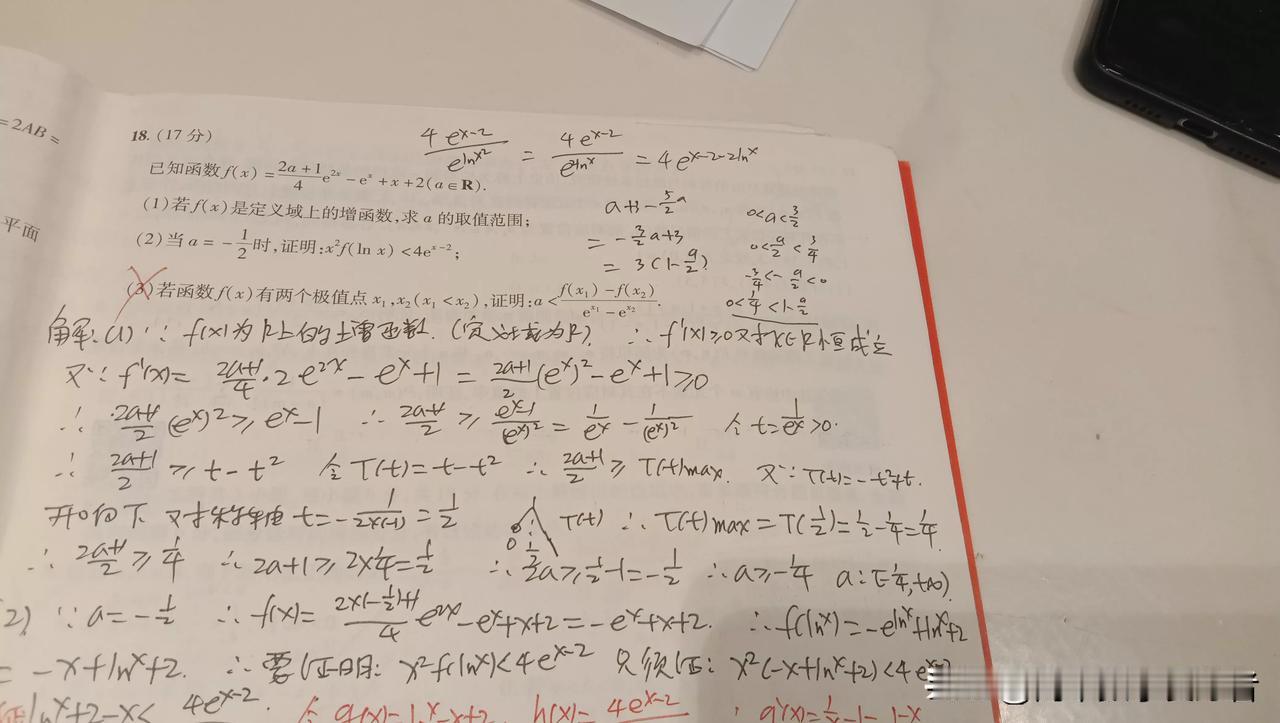 =2AB=
平面
18.(17分)
已知函数f(x)=\frac{2a+1}{4}e^{2x}-e^x+x+2(a∈R).
(1)若f(x)是定义域上的增函数,求a的取值范围;
(2)当a=-\frac{1}{2}时,证明:x²f(ln x)<4e^{x-2};
(3)若函数f(x)有两个极值点x₁,x₂(x₁<x₂),证明:a<\frac{f(x₁)-f(x₂)}{e^{x₁}-e^{x₂}}.
\frac{4e^{x-2}}{e^{lnx²}}=\frac{4e^{x-2}}{e^{2lnx}}=4e^{x-2-2lnx}
a+3-\frac{5}{2}a
=-\frac{3}{2}a+3
=3(1-\frac{a}{2})
0<a<\frac{3}{2}
0<\frac{a}{2}<\frac{3}{4}
-\frac{3}{4}<-\frac{a}{2}<0
0<\frac{1}{4}<1-\frac{a}{2}
解:(1)∵f(x)为R上的上增函数.(定义域为R) ∴f'(x)≥0对x∈R恒成立
又∵f'(x)=\frac{2a+1}{4}·2e^{2x}-e^x+1=\frac{2a+1}{2}(e^x)²-e^x+1≥0
∴\frac{2a+1}{2}(e^x)²≥e^x-1 ∴\frac{2a+1}{2}≥\frac{e^x-1}{(e^x)²}=\frac{1}{e^x}-\frac{1}{(e^x)²} 令t=\frac{1}{e^x}>0.
∴\frac{2a+1}{2}≥t-t² 令T(t)=t-t² ∴\frac{2a+1}{2}≥T(t)max. 又∵T(t)=-t²+t.
开口向下 对称轴由t=-\frac{1}{2×(-1)}=\frac{1}{2} 0 \frac{1}{2} T(t) ∴T(t)max=T(\frac{1}{2})=\frac{1}{2}-\frac{1}{4}=\frac{1}{4}.
∴\frac{2a+1}{2}≥\frac{1}{4} ∴2a+1≥2×\frac{1}{4}=\frac{1}{2} ∴2a≥\frac{1}{2}-1=-\frac{1}{2} ∴a≥-\frac{1}{4} a:[-\frac{1}{4},+∞)
2)∵a=-\frac{1}{2} ∴f(x)=\frac{2×(-\frac{1}{2})+1}{4}e^{2x}-e^x+x+2=-e^x+x+2. ∴f(lnx)=-e^{lnx}+lnx+2
=-x+lnx+2. ∴要证明:x²f(lnx)<4e^{x-2} 只须证:x²(-x+lnx+2)<4e^{x-2}
证lnx+2-x<4e^{x-2}. 令g(x)=lnx-x+2. h(x)=4e^{x-2} ∵g'(x)=\frac{1}{x}-1=1-x